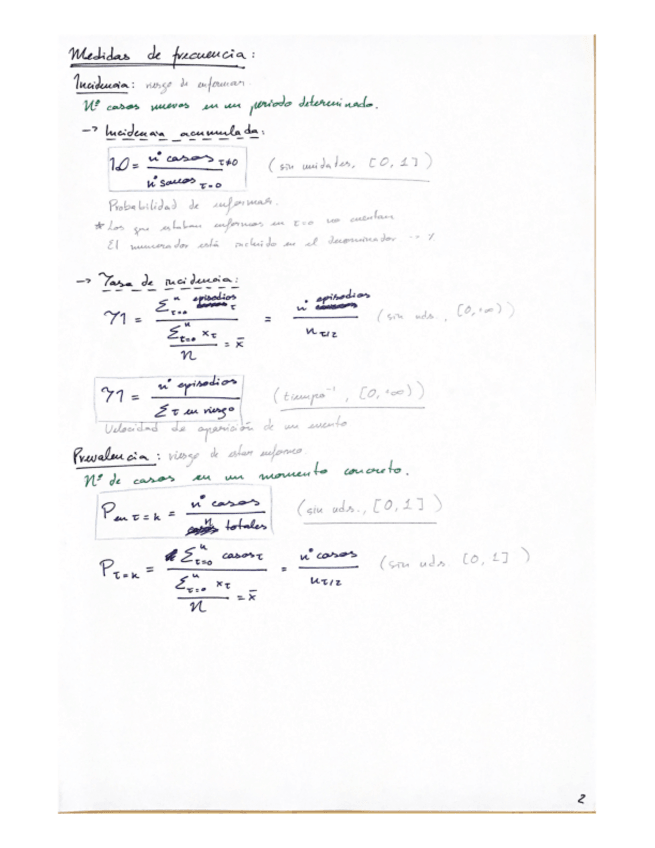 Medidas de frecuencia:
Incidencia: riesgo de enfermar.
Nº casos nuevos en un periodo determinado.
-> Incidencia acumulada:
= nº casos τ≠0 / nº sanos τ=0 (sin unidades, [0, 1])
Probabilidad de enfermar.
* Los que estaban enfermos en τ=0 no cuentan
El numerador está incluido en el denominador
-> Tasa de incidencia:
= Σ τ=0 n episodios τ / (Σ τ=0 n xτ / n = x̄) = nº episodios / n τ/2 (sin uds., [0, +∞))
= nº episodios / Σ τ en riesgo (tiempo⁻¹, [0, +∞))
Velocidad de aparición de un evento
Prevalencia: riesgo de estar enfermo.
Nº de casos en un momento concreto.
P en τ=k = nº casos / n totales (sin uds., [0, 1])
P τ=k = Σ τ=0 n casos τ / (Σ τ=0 n xτ / n = x̄) = nº casos / n τ/2 (sin uds. [0, 1])
2